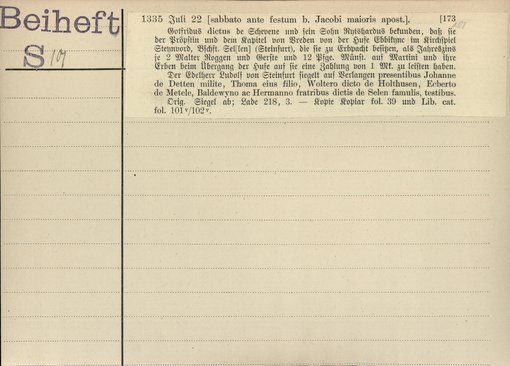 Beiheft
S 19
1335 Juli 22 [sabbato ante festum b. Jacobi maioris apost.]. [173
Gotfridus dictus de Schevene und sein Sohn Rutghardus bekunden, daß sie
der Pröpstin und dem Kapitel von Vreden von der Hufe Ebbikync im Kirchspiel
Steynvord, Bschft. Sel[len] (Steinfurt), die sie zu Erbpacht besitzen, als Jahreszins
je 2 Malter Roggen und Gerste und 12 Pfge. Münst. auf Martini und ihre
Erben beim Übergang der Hufe auf sie eine Zahlung von 1 Mk. zu leisten haben.
Der Edelherr Ludolf von Steinfurt siegelt auf Verlangen presentibus Johanne
de Detten milite, Thoma eius filio, Woltero dicto de Holthusen, Ecberto
de Metele, Baldewyno ac Hermanno fratribus dictis de Selen famulis, testibus.
Orig. Siegel ab; Lade 218, 3. — Kopie Kopiar fol. 39 und Lib. cat.
fol. 101v/102v.